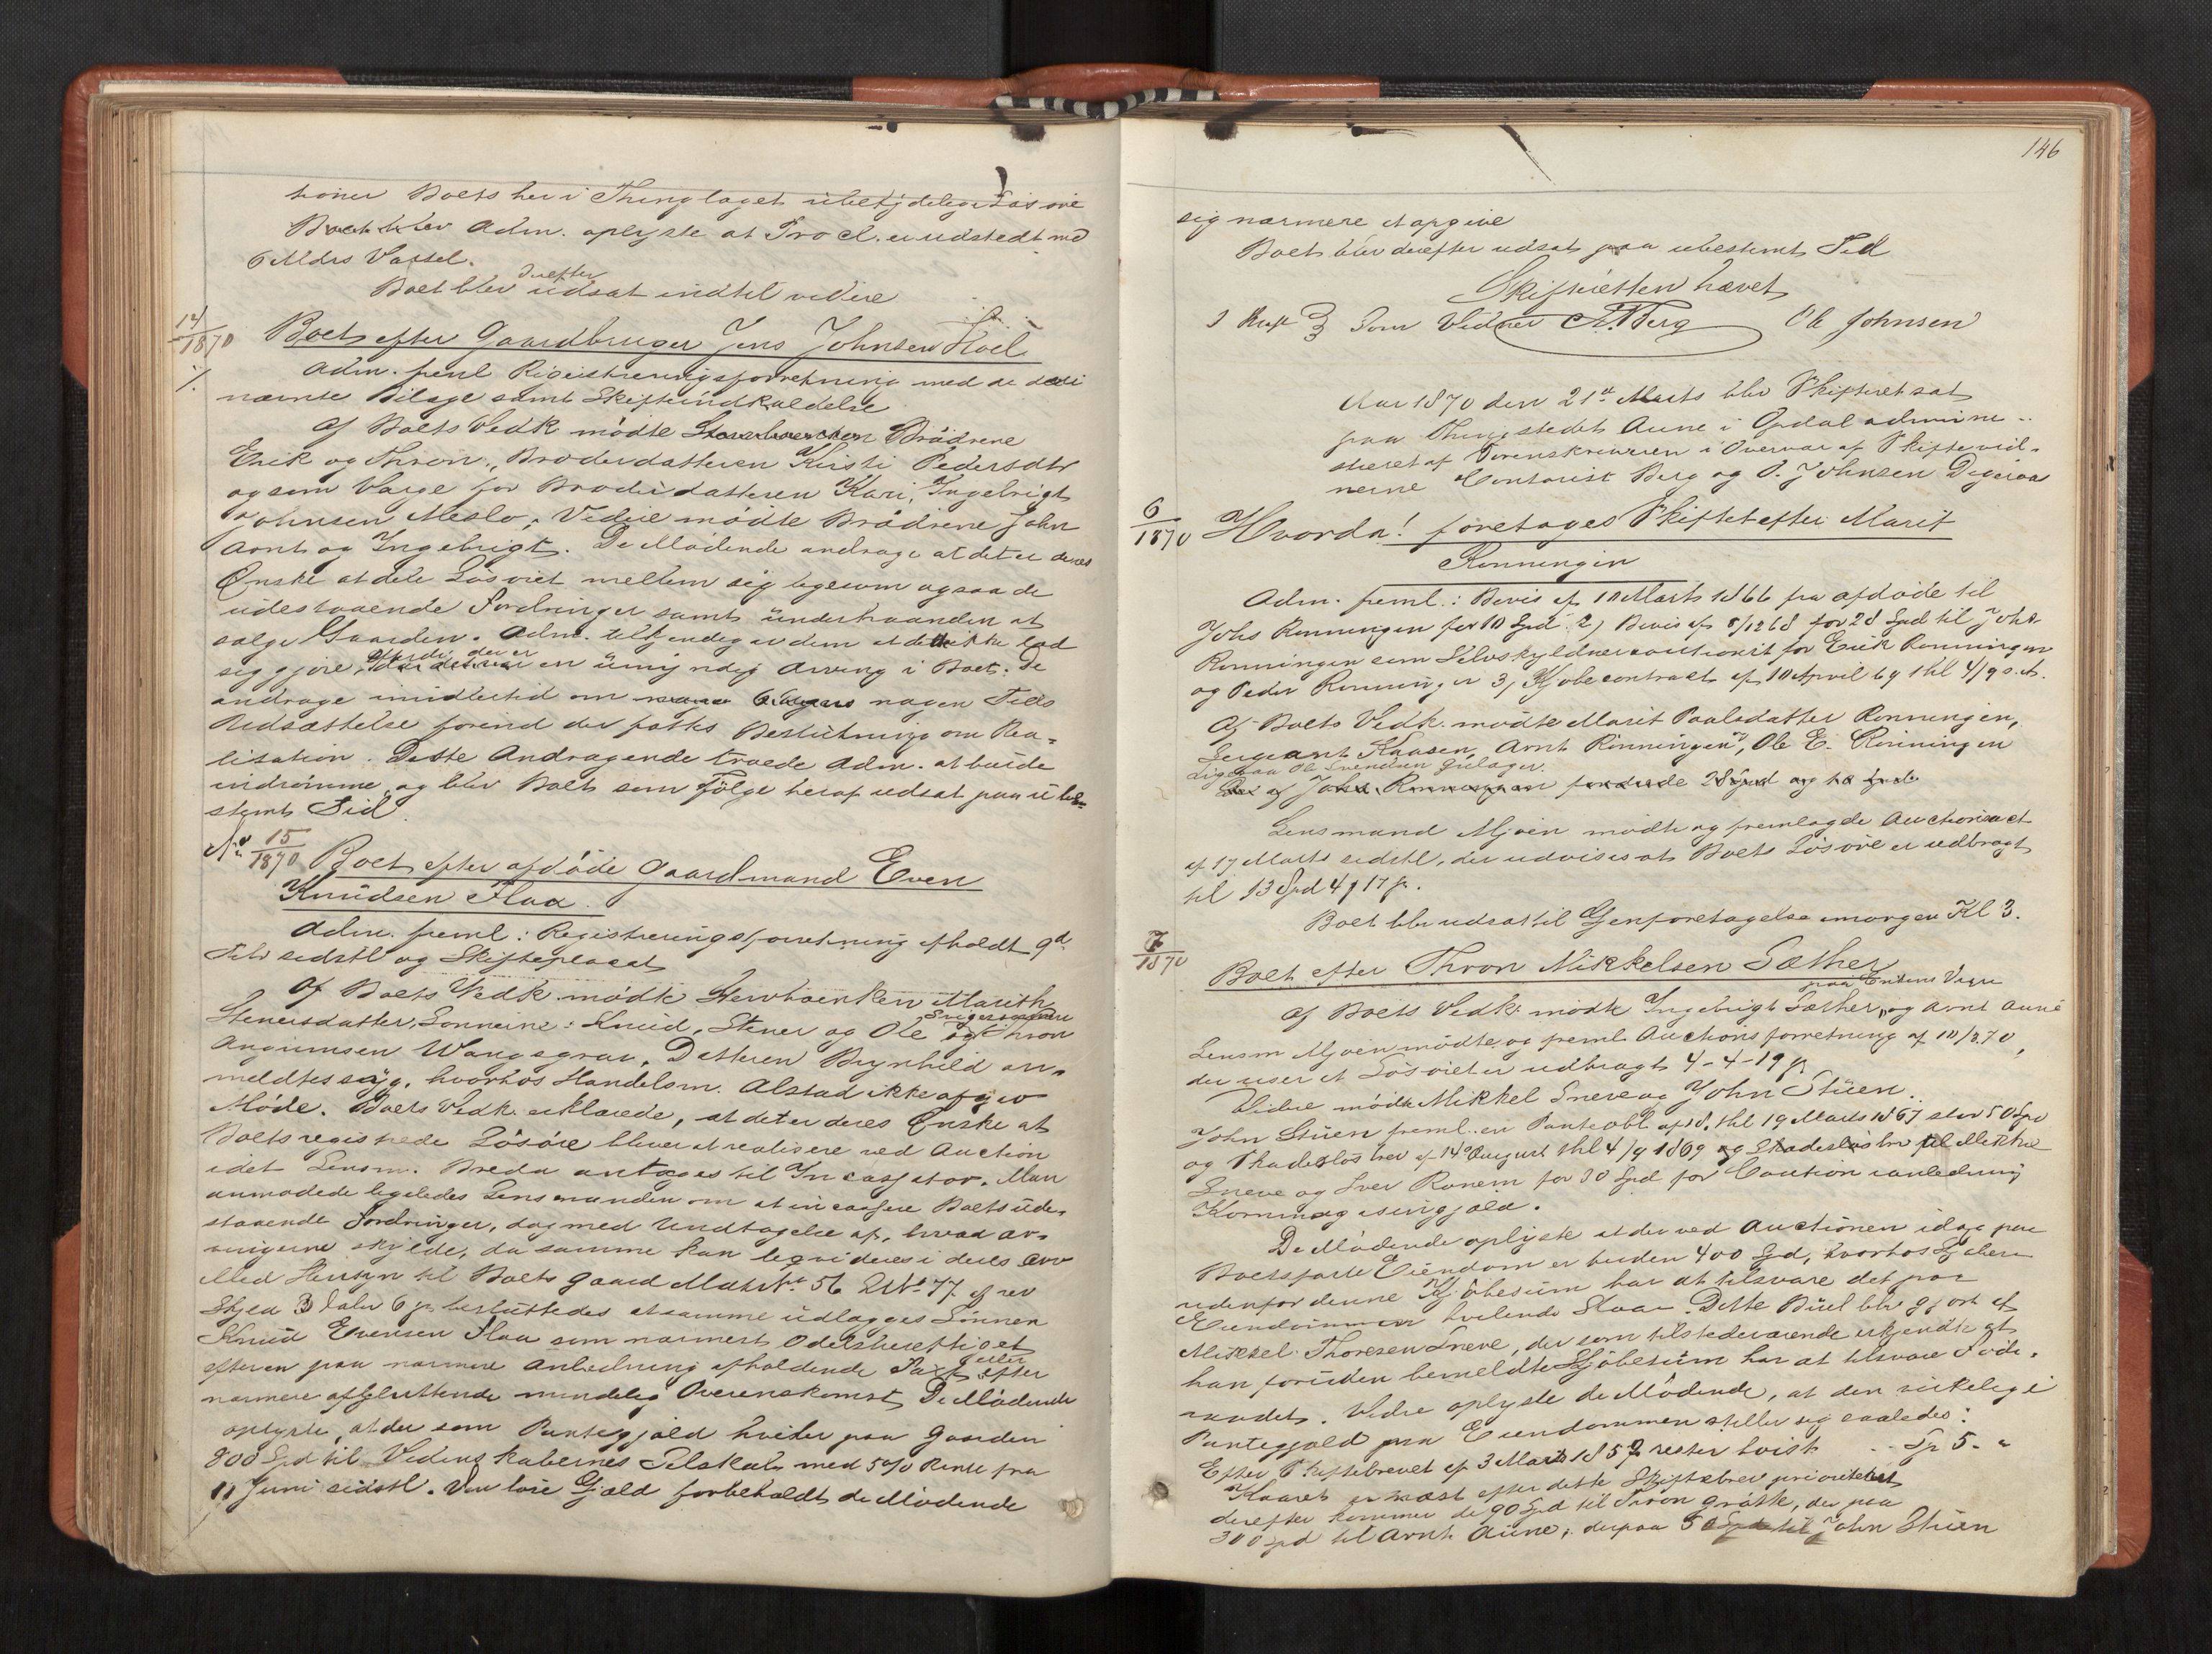 tioner Boets her i Thinglaget ubetydelige Løsøre
Boet blev Adm. oplyste at Procl. er udstedt med
6 Mdrs Varsel.
derefter
Boet blev udsat indtil videre
14/1870 Boet efter Gaardbruger Jens Johnsen Hoel
Adm. freml Registreringsforretning med de deri
nævnte Bilage samt Skifteindkaldelse
Af Boets Vedk mødte Brødrene
Erik og Thron, Broderdatteren Kirsti Pedersdtr
og som Værge for Broderdatteren Kari, Ingebrigt
Johnsen Meslo, Videre mødte Brødrene John
Arnt og Ingebrigt. De Mødende androge at det er deres
Ønske at dele Løsøret mellem sig ligesom ogsaa de
udestaaende Fordringer samt underhaanden at
sælge Gaarden. Adm. tilkjendegav dem at dette ikke lod
der er
sig gjøre, en umyndig Arving i Boet. De
androge imidlertid om nogen Tids
Udsættelse førend der fattes Beslutning om Rea-
lisation. Dette Andragende troede Adm. at burde
indrømme og blev Boet som Følge heraf udsat paa ube-
stemt Tid.
No 15/1870 Boet efter afdøde Gaardmand Even
Knudsen Flaa.
Adm. freml: Registreringsforretning afholdt 9d
Febr sidstl og Skifteplacat
Af Boets Vedk. mødte Stervboenken Marith
Svigersønnen
Stenersdatter, Sønnerne: Knud, Stener og Ole og Thron
Angrimsen Wangsgrav. Datteren Brynhild an-
meldtes syg, hvorhos Handelsm. Alstad ikke afgav
Møde. Boets Vedk. erklærede, at det er deres Ønske at
Boets registrede Løsøre bliver at realisere ved Auction
idet Lensm. Breda antoges til Incassator. Man
anmodede ligeledes Lensmanden om at incassere Boets ude-
staaende Fordringer, dog med Undtagelse af, hvad Ar-
vingerne skylde, da samme kan liqvideres i deres Arv
Med Hensyn til Boets Gaard Matr No 56 LNo 77 af rev
Skyld 3 Daler 6 ß besluttedes at samme udlægges Sønnen
Knud Evensen Flaa som nærmest Odelsberettiget
eller
efter en paa nærmere Anledning afholdende Taxt efter
nærmere afsluttende mindelig Overenskomst De Mødende
oplyste, at der som Pantegjæld hviler paa Gaarden
800 Spd til Videnskabernes Selskab med 5% Rente fra
11 Juni sidstl. Den løse Gjæld forbeholdt de Mødende
146
sig nærmere at opgive
Boet blev derefter udsat paa ubestemt Tid
Skifteretten hævet
Som Vidner Berg Ole Johnsen
Aar 1870 den 21de Marts blev Skifteret sat
paa Thingstedet Aune i Opdal admini-
streret af Sorenskriveren i Overvær af Skiftevid-
nerne Contorist Berg og O. Johnsen
6/1870 Hvorda! foretages Skiftet efter Marit
Rønningen
Adm. freml.: Bevis af 10 Marts 1866 fra afdøde til
Johs Rønningen for 10 Spd. 2, Bevis af 8/12 68 for 28 Spd til Johs
Rønningen som Selvskyldnercautionist for Erik Rønningen
og Peder Rønningen 3, Kjøbecontract af 10 April 69 thl 4/9 s.A.
Af Boets Vedk. mødte Marit Paalsdatter Rønningen,
Sergeant Kaasen, Arnt Rønningen, Ole E. Rønningen
ligesaa Ole Svendsen
Johs. Rønningen fordrede 28 Spd og 10 Spd.
Lensmand Mjøen mødte og fremlagde Auctionsact
af 17 Marts sidstl, der udvises at Boets Løsøre er udbragt
til 13 Spd 4 ƒ 17 ß.
Boet blev udsat til Gjenforetagelse imorgen Kl 3.
7/1870 Boet efter Thron Mikkelsen Sæther
paa Enkens Vegne
Af Boets Vedk. mødte Ingebrigt Sæther, og Arnt Aune
Lensm Mjøen mødte og freml Auctionsforretning af 10/3 70,
der viser at Løsøret er udbragt 4-4-19 ß
Videre mødte Mikkel Sneve og John Stuen.
John Stuen freml. en Panteobl. af 18. thl 19 Marts 1867 stor 50 Spd
og Skadesløsbrev af 14 August thl 4/9 1869 og Skadesløsbrev til Mikkel
Sneve og Iver Ranem for 30 Spd for Caution ianledning
Kornmagasingjæld.
De Mødende oplyste at der ved Auctionen idag paa
Boets faste Eiendom er buden 400 Spd, hvorhos Kjøberen
udenfor denne Kjøbesum har at tilsvare det paa
Eiendommen hvilende Kaar. Dette Bud blev gjort af
Mikkel Thoresen Sneve, der som tilstedeværende erkjendte at
han foruden bemeldte Kjøbesum har at tilsvare Føde-
raadet. Videre oplyste de Mødende, at den virkelige
Pantegjæld paa Eiendommen stiller sig saaledes:
Efter Skiftebrevet af 3 Marts 1857 rester hvist .. Sp 5. "
Kaaret er næst efter dette Skiftebrev prioriteret
derefter kommer de 90 Spd til Thron, der paa
300 Spd til Arnt Aune, derpaa 50 Spd til John Stuen